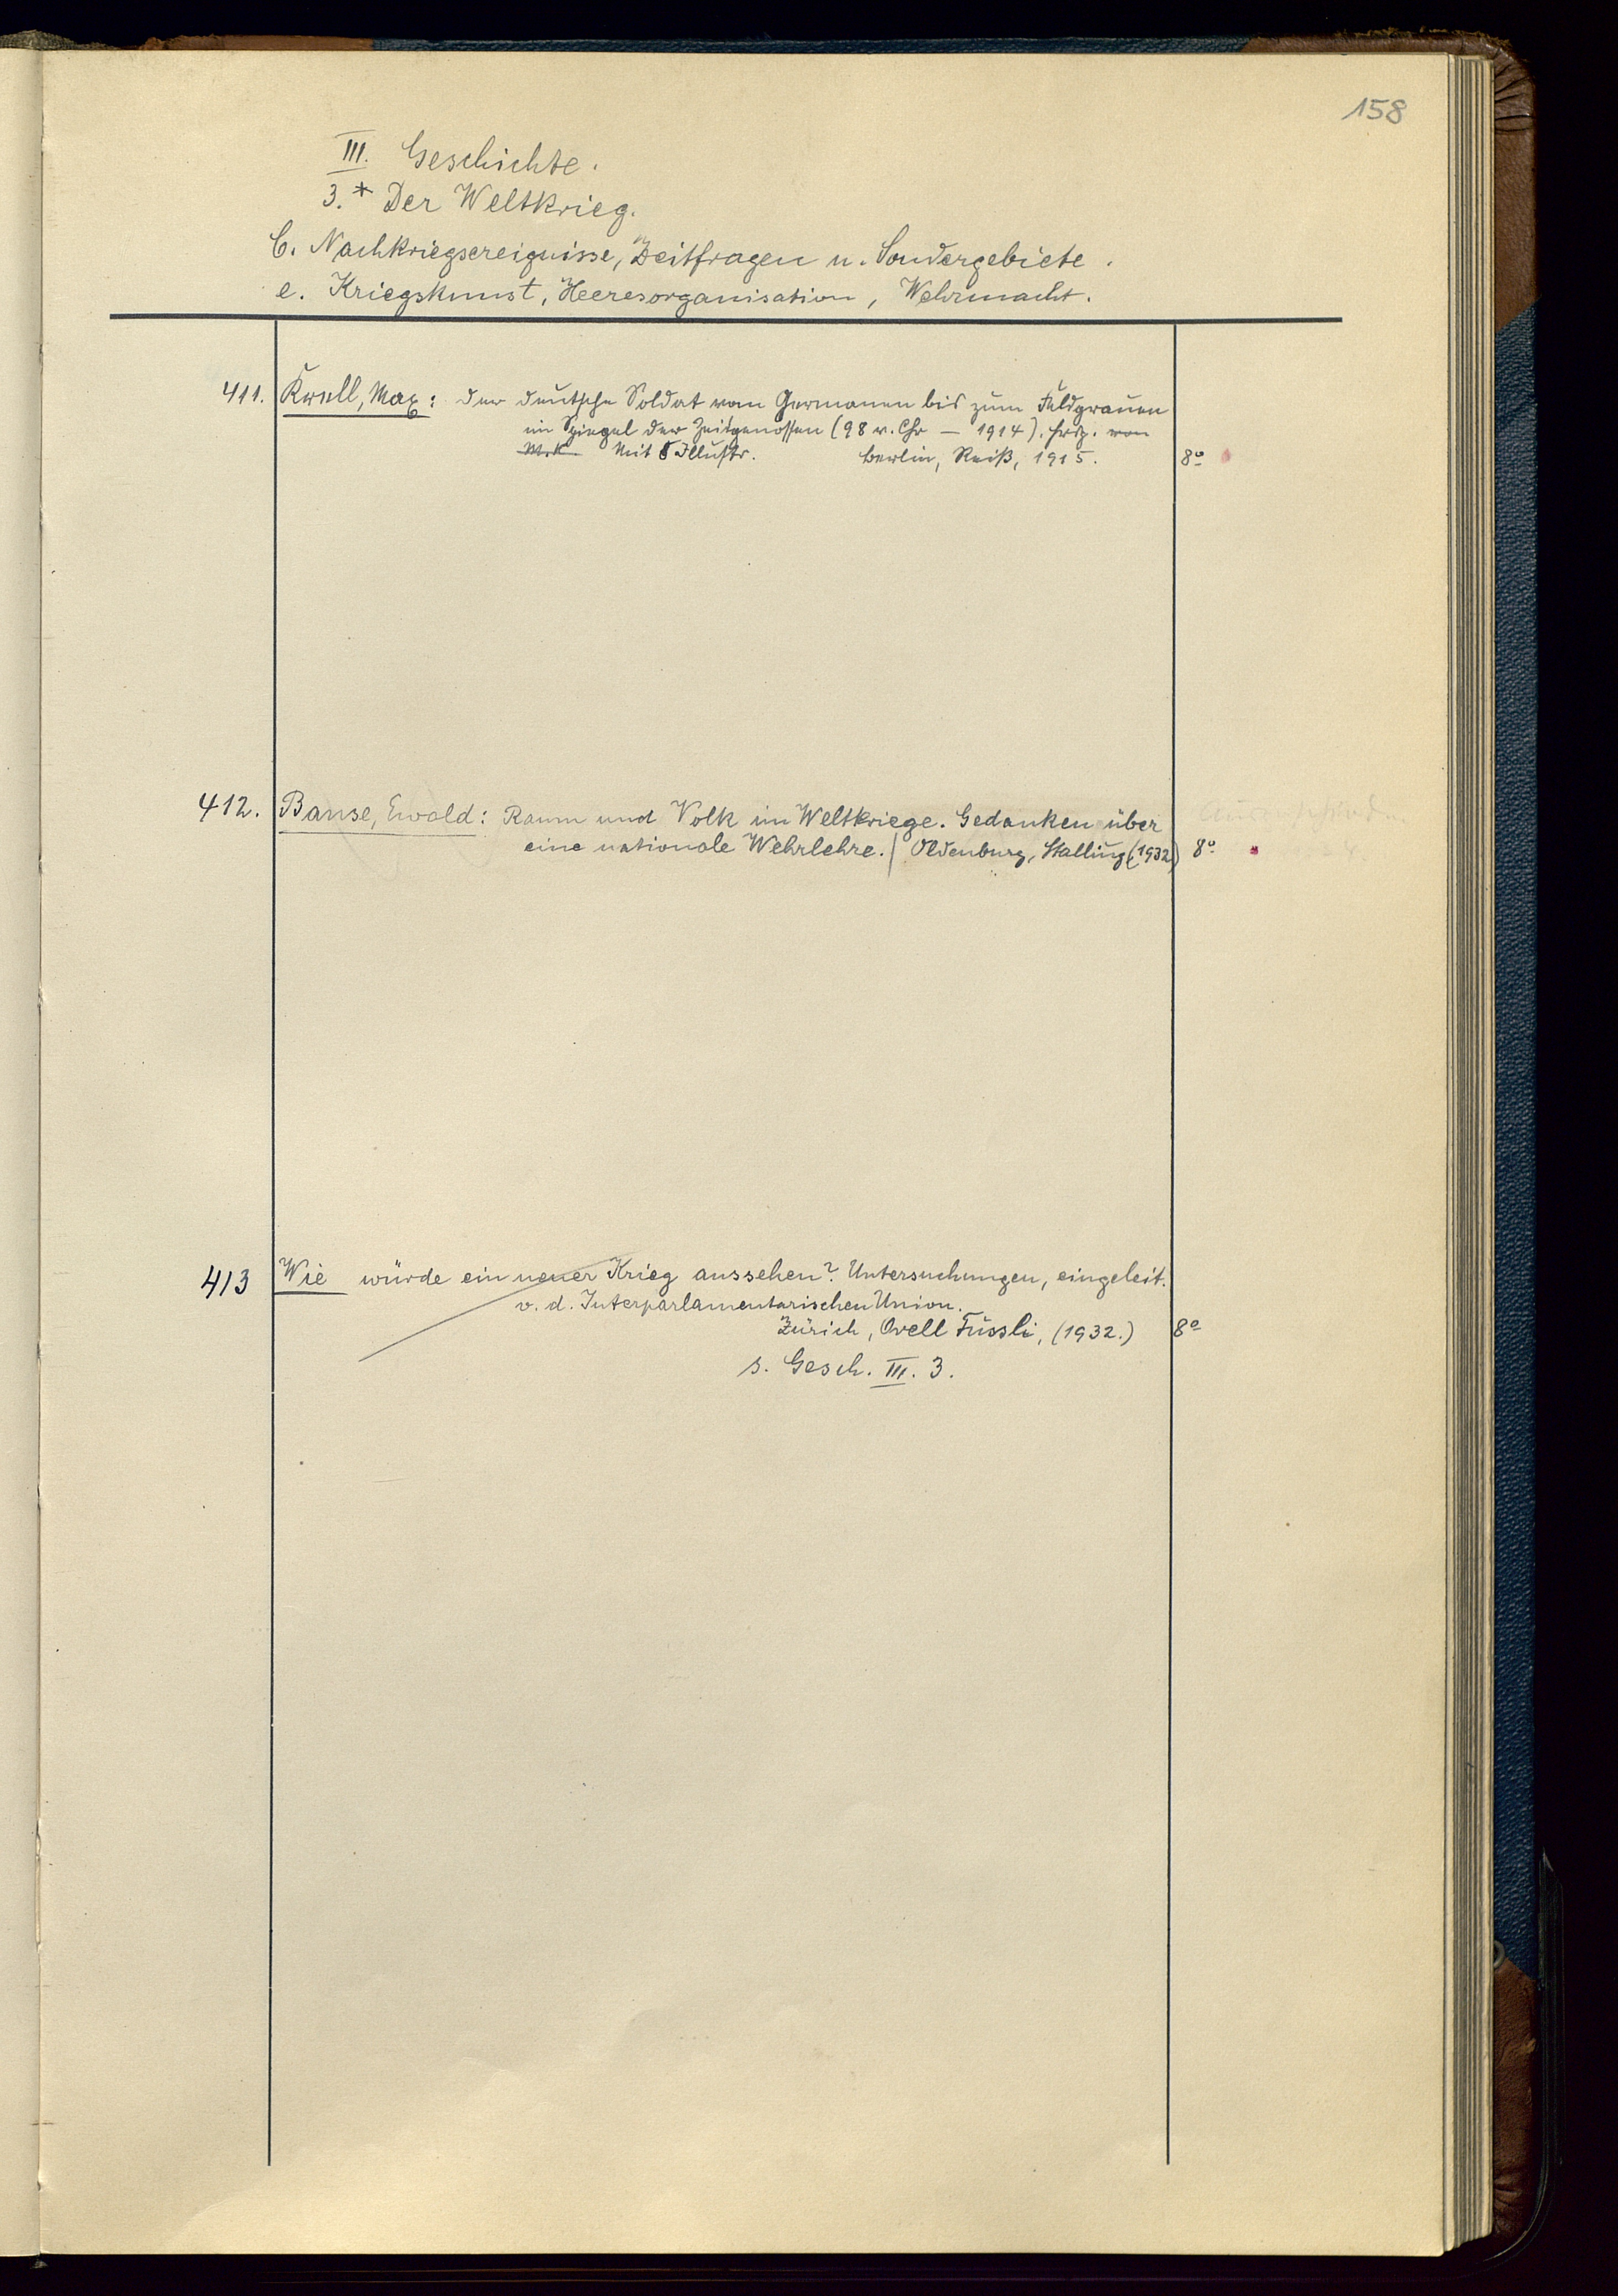 158
III. Geschichte.
3.* Der Weltkrieg.
C. Nachkriegsereignisse, Zeitfragen u. Sondergebiete.
e. Kriegskunst, Heeresorganisation, Wehrmacht.
411. Krell, Max: Der deutsche Soldat vom Germanen bis zum Feldgrauen
im Spiegel der Zeitgenossen (98 v. Chr – 1914). Hrsg. von
M. K. Mit 8 Illustr. Berlin, Reiß, 1915. 8º
412. Banse, Ewald: Raum und Volk im Weltkriege. Gedanken über
eine nationale Wehrlehre. / Oldenburg, Stalling, (1932) 8º
413 Wie würde ein neuer Krieg aussehen? Untersuchungen, eingeleit.
v. d. Interparlamentarischen Union.
Zürich, Orell Füssli, (1932.) 8º
s. Gesch. III. 3.